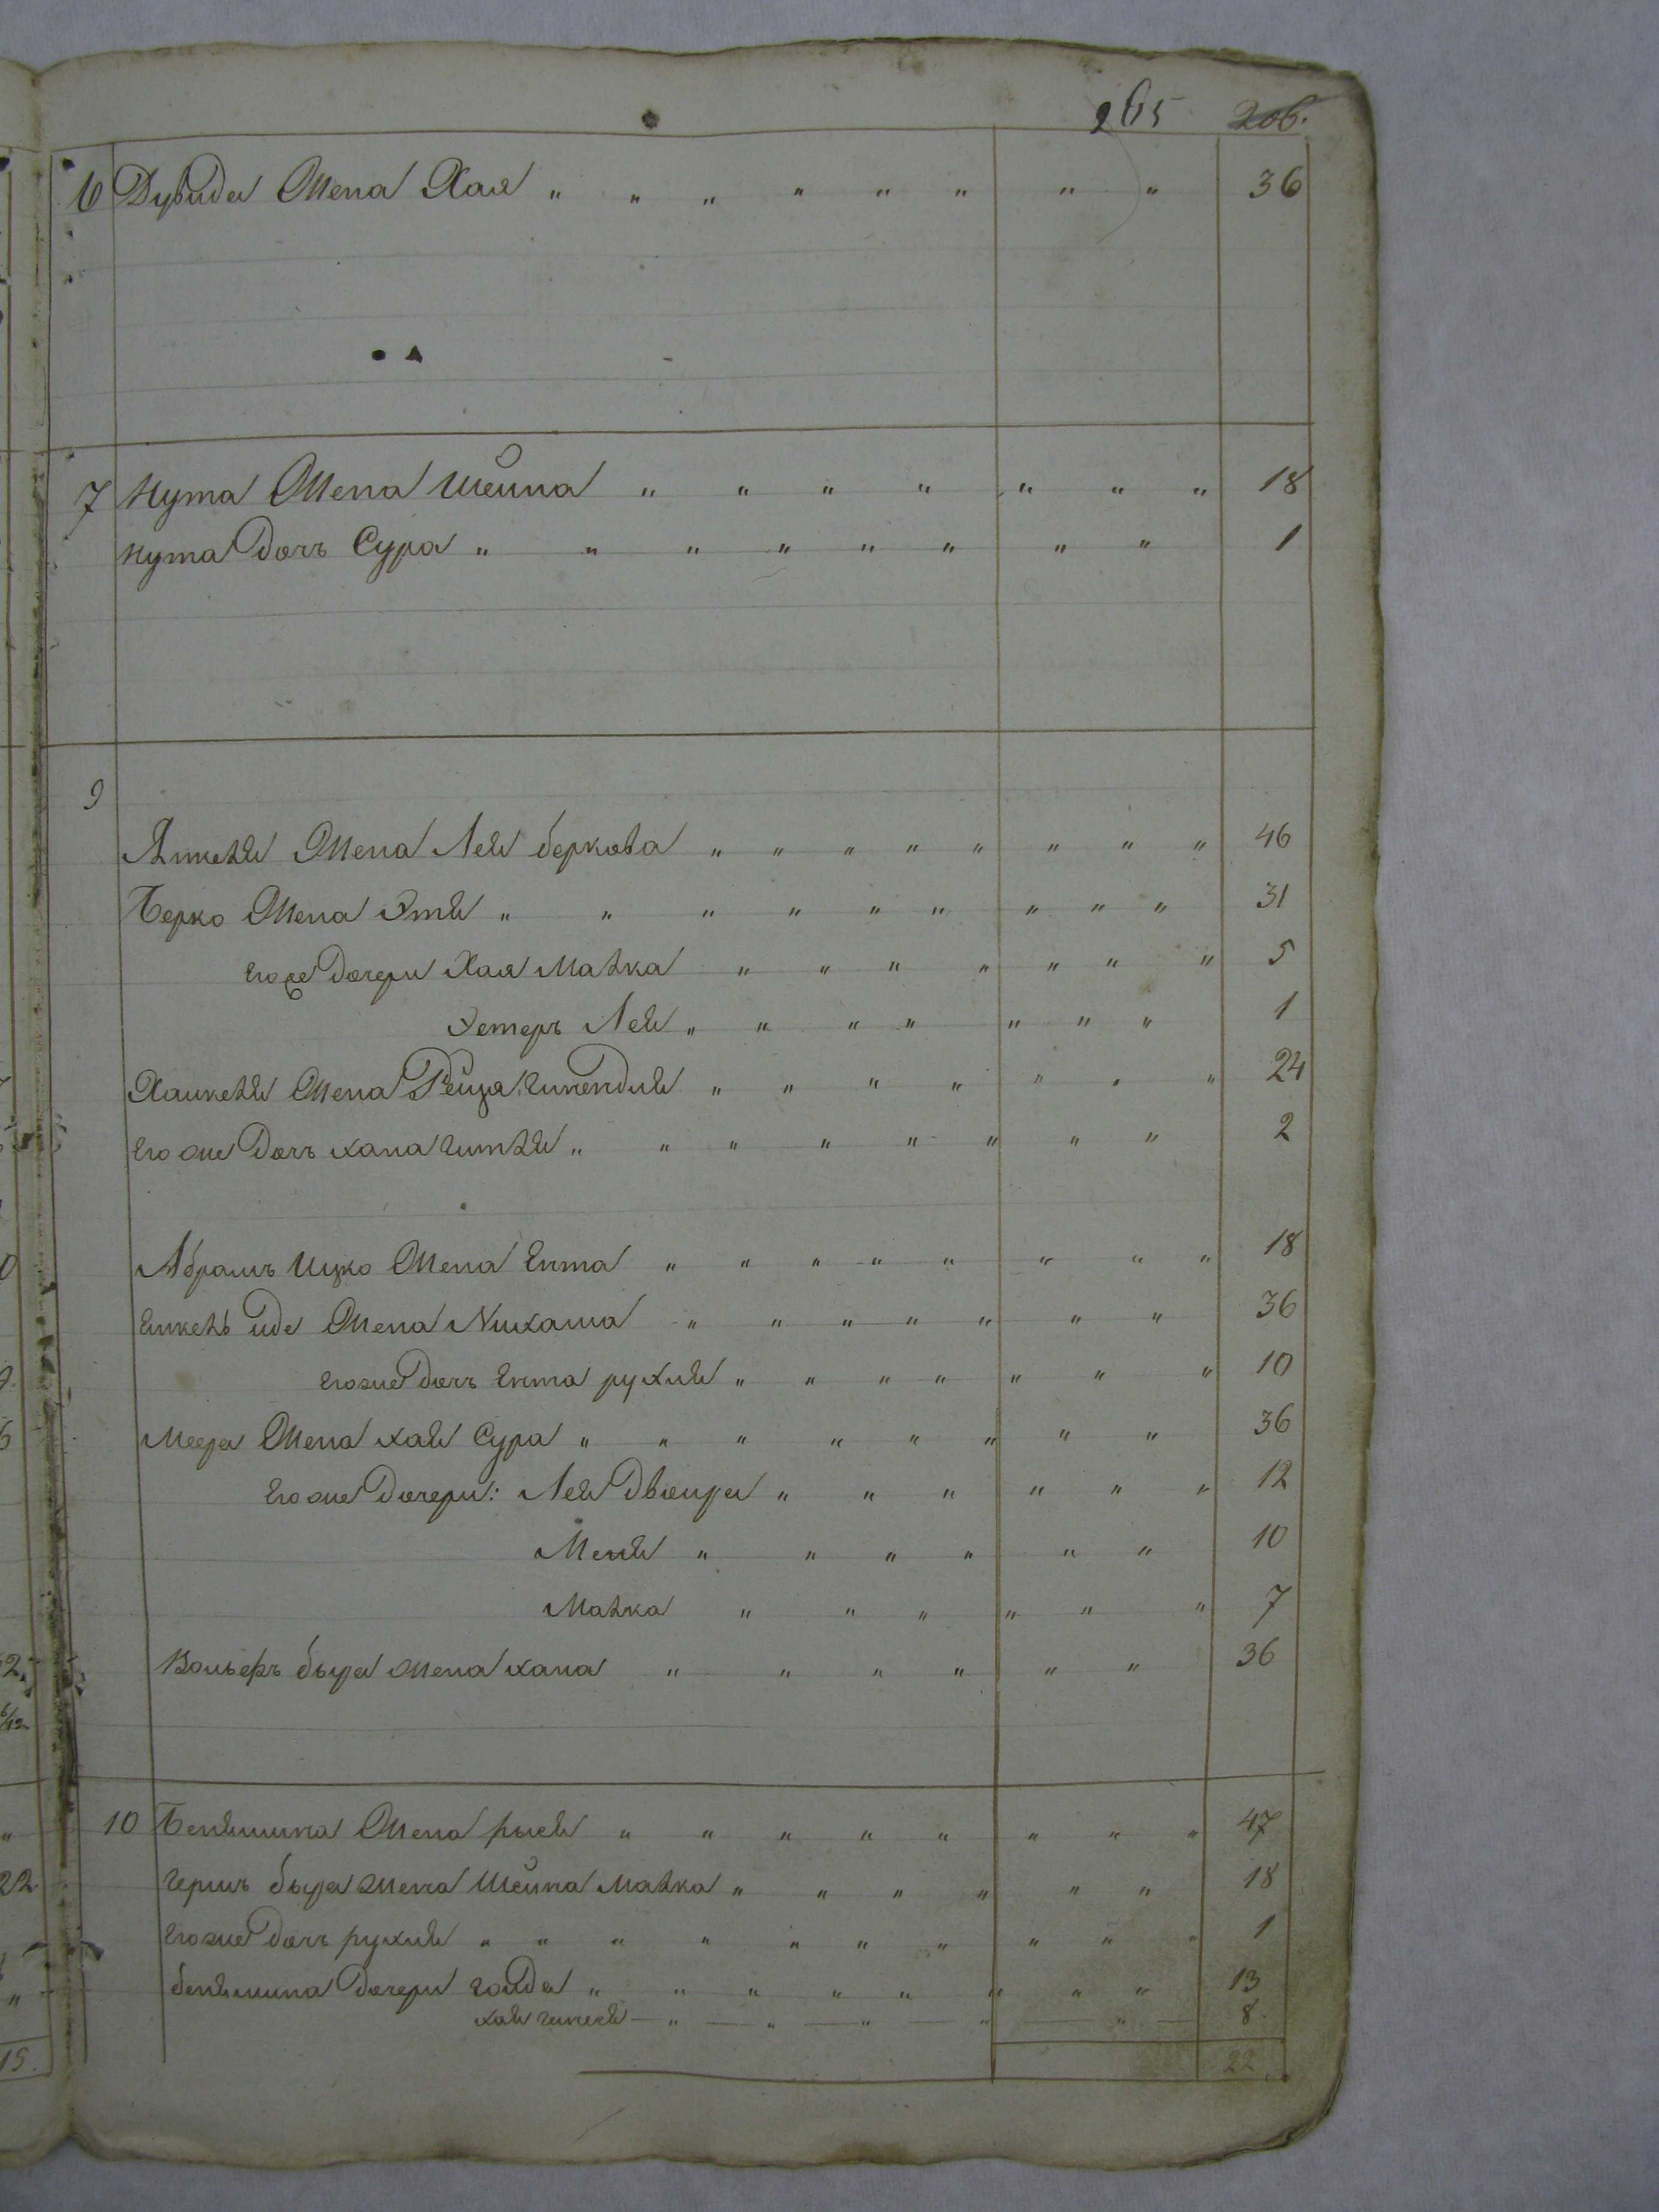 265 206.
6 Дувида Жена Хая " " " " " " " " 36
7 Нута Жена Шейна " " " " " " " 18
Нута дочь Сура " " " " " " " " 1
9
Янкеля Жена Лея Беркова " " " " " " " " 46
Берко Жена Этя " " " " " " " " " 31
его же дочери Хая Малка " " " " " " " 5
Эстеръ Лея " " " " " " " 1
Хаикеля Жена Рейза " " " " " " " 24
его же дочь хана гитля " " " " " " " " 2
Абрамъ Ицко Жена Ента " " " " " " " " 18
Жена " " " " " " " 36
его же дочь Ента рухля " " " " " " " 10
Меера Жена хая Сура " " " " " " " " 36
его же дочери: Лея Двейра " " " " " " 12
" " " " " " 10
Малка " " " " " " 7
Вольфъ быра жена хана " " " " " " 36
10 Бениямина Жена рыся " " " " " " " " 47
гершъ быра жена Шейна Малка " " " " " " 18
его же дочь рухля " " " " " " " " " " 1
бениямина дочери голда " " " " " " " " 13
хая " " " " " 8.
22
15.